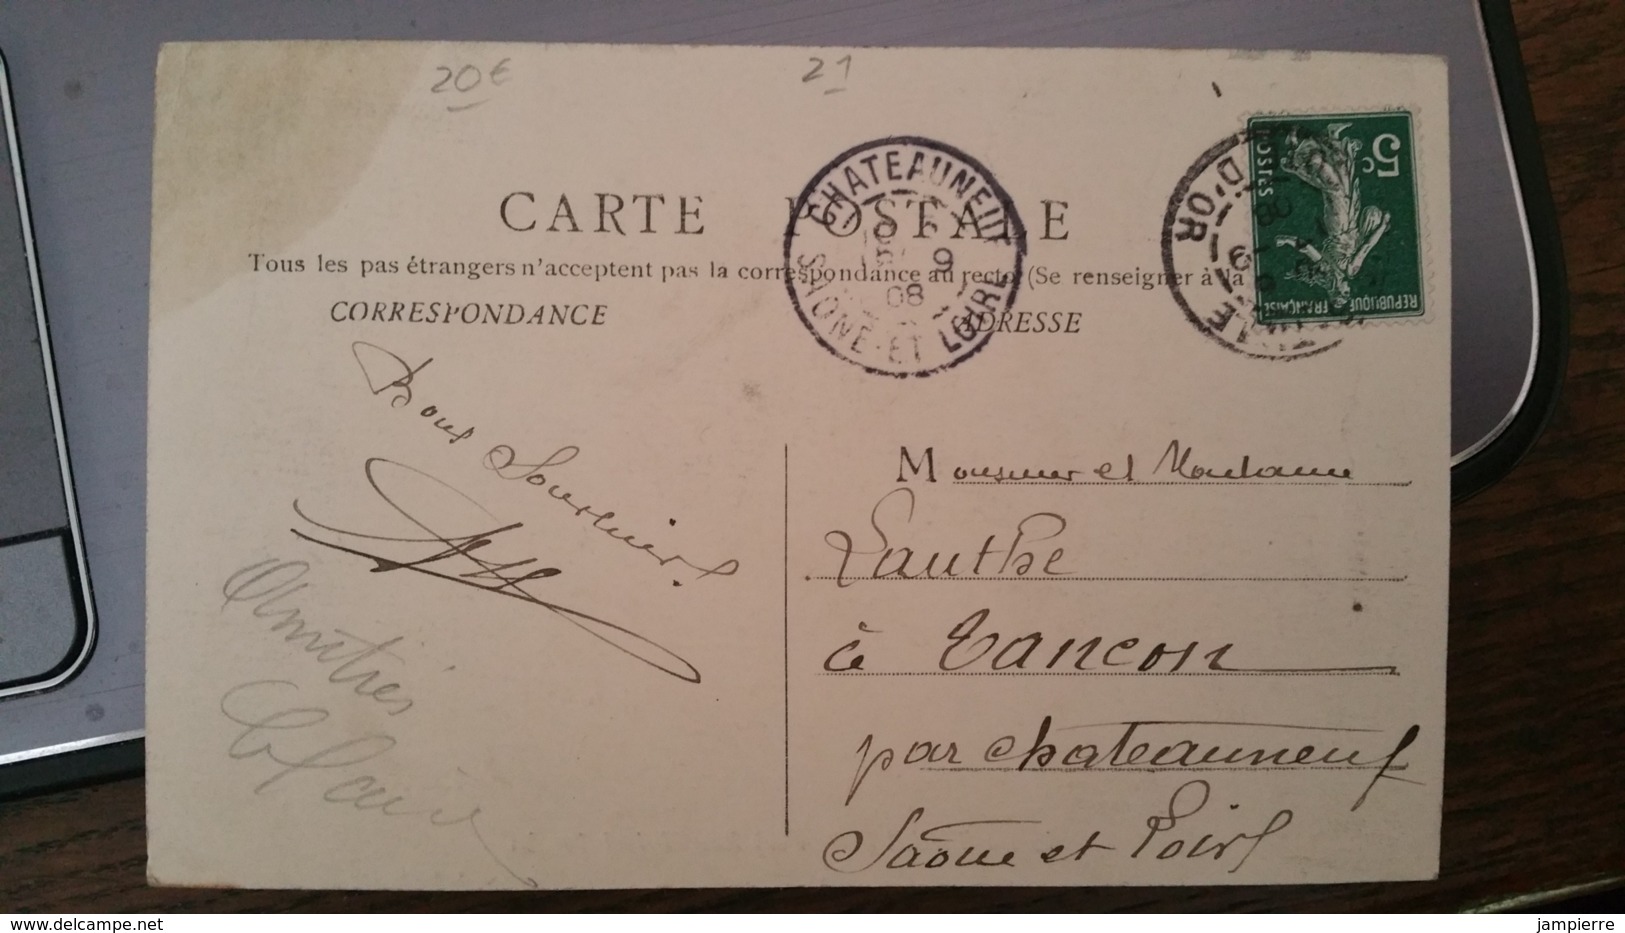 20€
21
CARTE POSTALE
Tous les pas étrangers n'acceptent pas la correspondance au recto (Se renseigner à la
CORRESPONDANCE
ADRESSE
CHATEAUNEUF
9
08
SAONE-ET LOIRE
D'OR
5c
POSTES
REPUBLIQUE FRANÇAISE
Bons Souvenirs.
Amitiés
Claire
Monsieur et Madame
Lauthe
à Tancon
par Chateauneuf
Saône et Loire
delcampe.net
jampierre